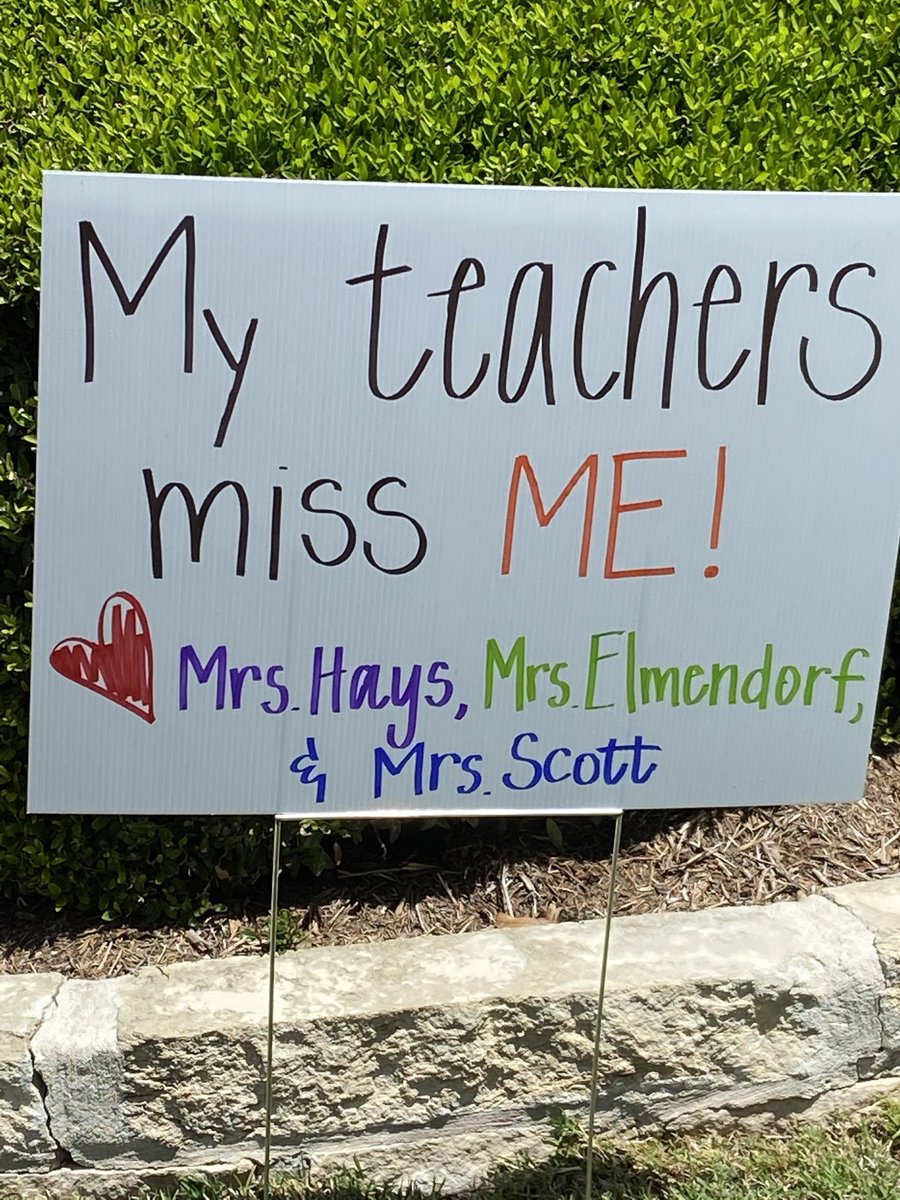 My teachers
miss ME!
Mrs. Hays, Mrs. Elmendorf,
& Mrs. Scott